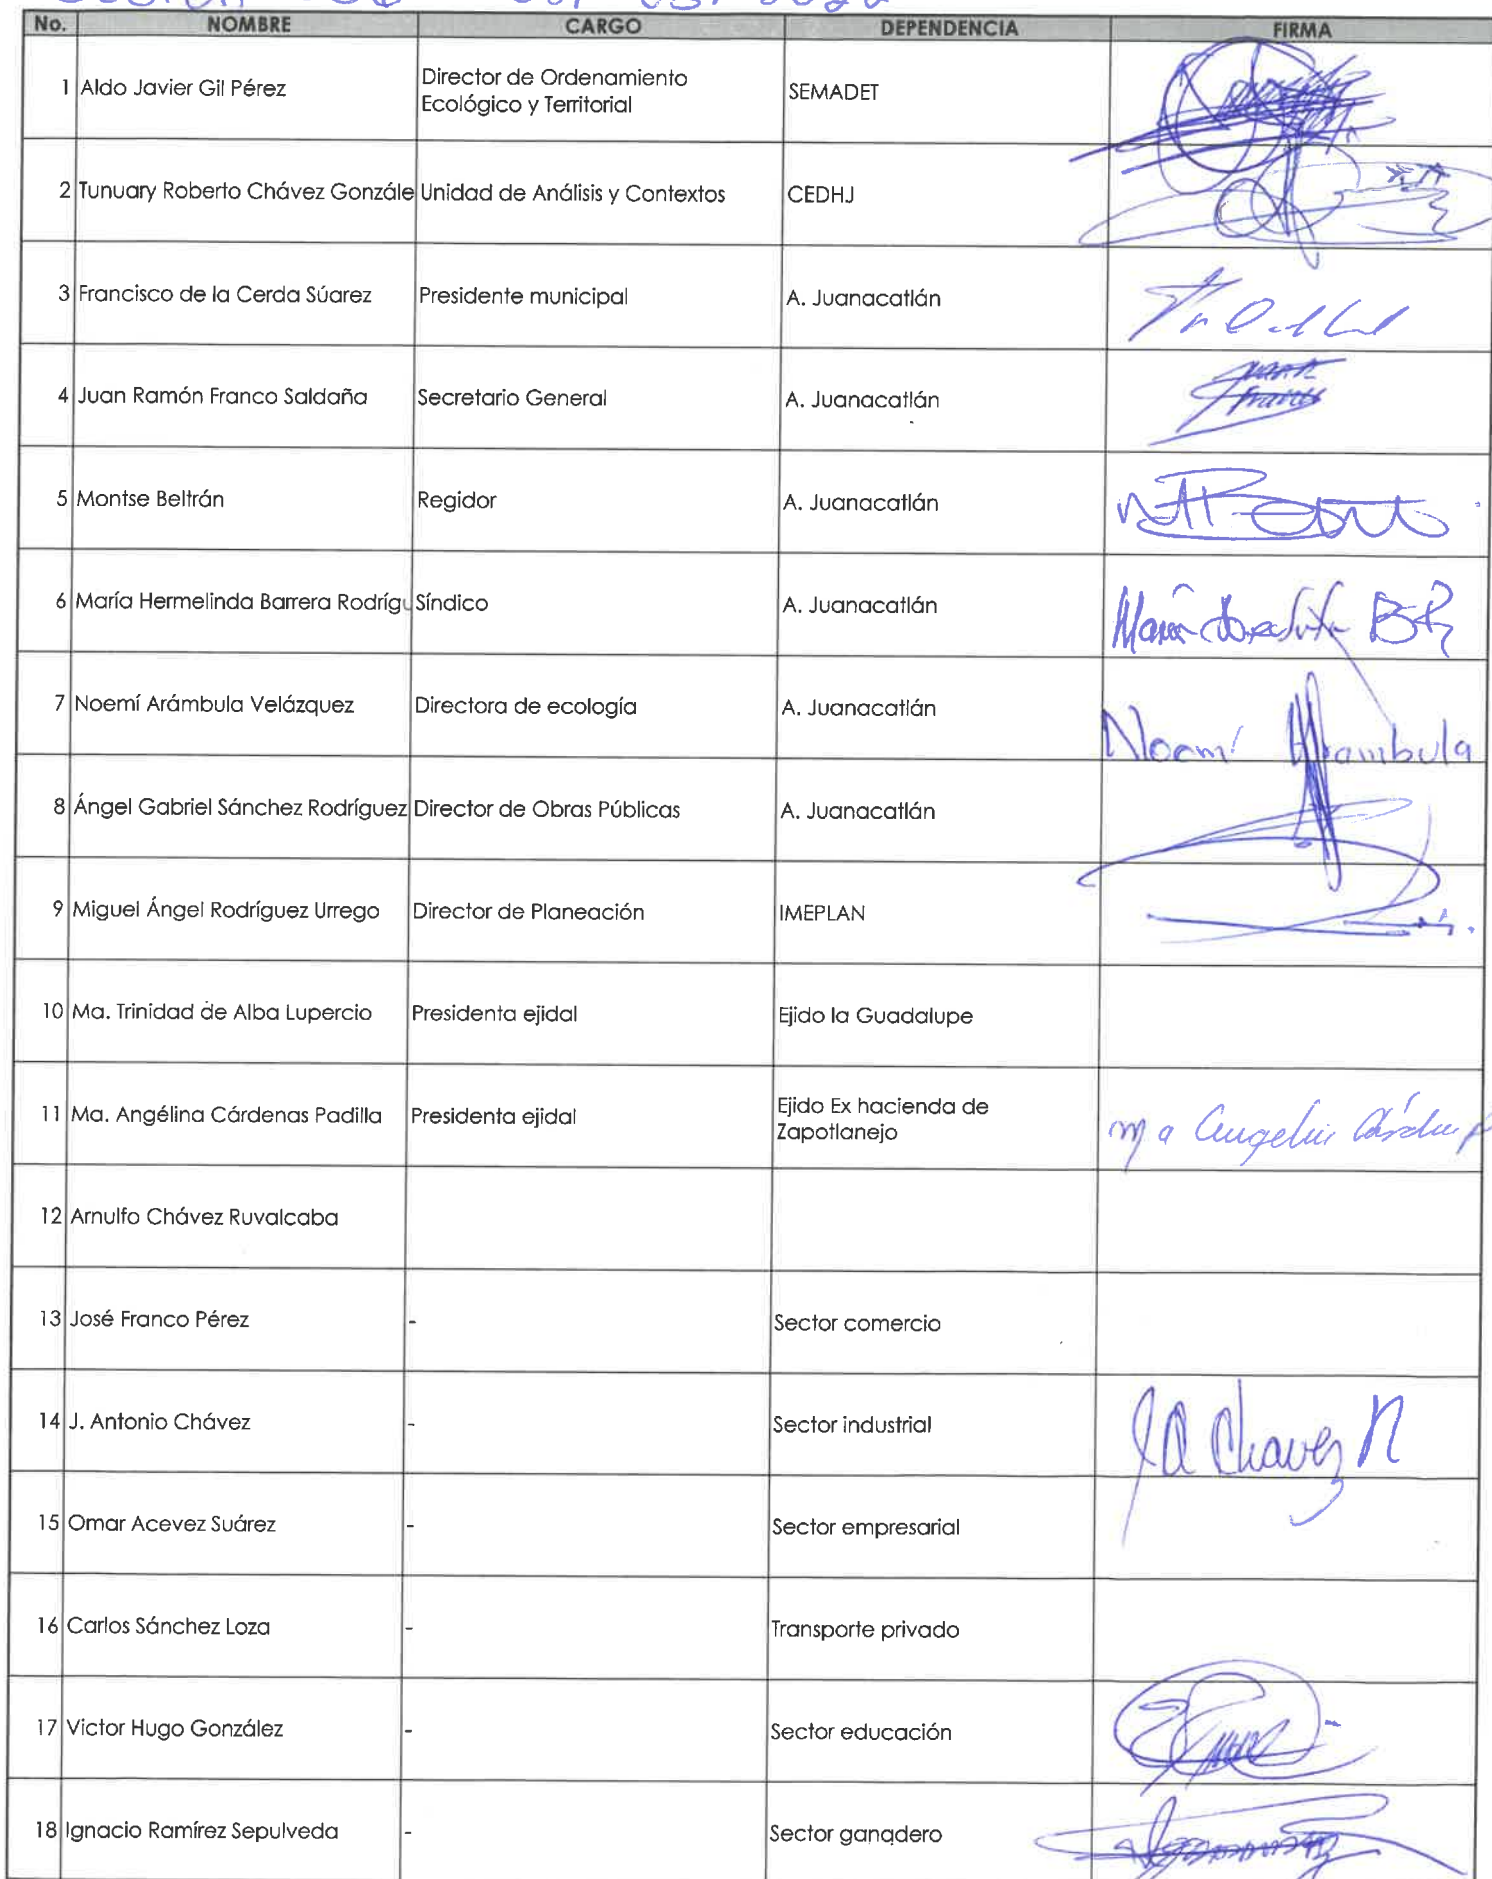 No. NOMBRE CARGO DEPENDENCIA FIRMA
1 Aldo Javier Gil Pérez Director de Ordenamiento Ecológico y Territorial SEMADET
2 Tunuary Roberto Chávez Gonzále Unidad de Análisis y Contextos CEDHJ
3 Francisco de la Cerda Súarez Presidente municipal A. Juanacatlán
4 Juan Ramón Franco Saldaña Secretario General A. Juanacatlán
5 Montse Beltrán Regidor A. Juanacatlán
6 María Hermelinda Barrera Rodrígu Síndico A. Juanacatlán
7 Noemí Arámbula Velázquez Directora de ecología A. Juanacatlán Noemí Arambula
8 Ángel Gabriel Sánchez Rodríguez Director de Obras Públicas A. Juanacatlán
9 Miguel Ángel Rodríguez Urrego Director de Planeación IMEPLAN
10 Ma. Trinidad de Alba Lupercio Presidenta ejidal Ejido la Guadalupe
11 Ma. Angélina Cárdenas Padilla Presidenta ejidal Ejido Ex hacienda de Zapotlanejo
12 Arnulfo Chávez Ruvalcaba
13 José Franco Pérez - Sector comercio
14 J. Antonio Chávez - Sector industrial J A Chavez N
15 Omar Acevez Suárez - Sector empresarial
16 Carlos Sánchez Loza - Transporte privado
17 Victor Hugo González - Sector educación
18 Ignacio Ramírez Sepulveda - Sector ganadero